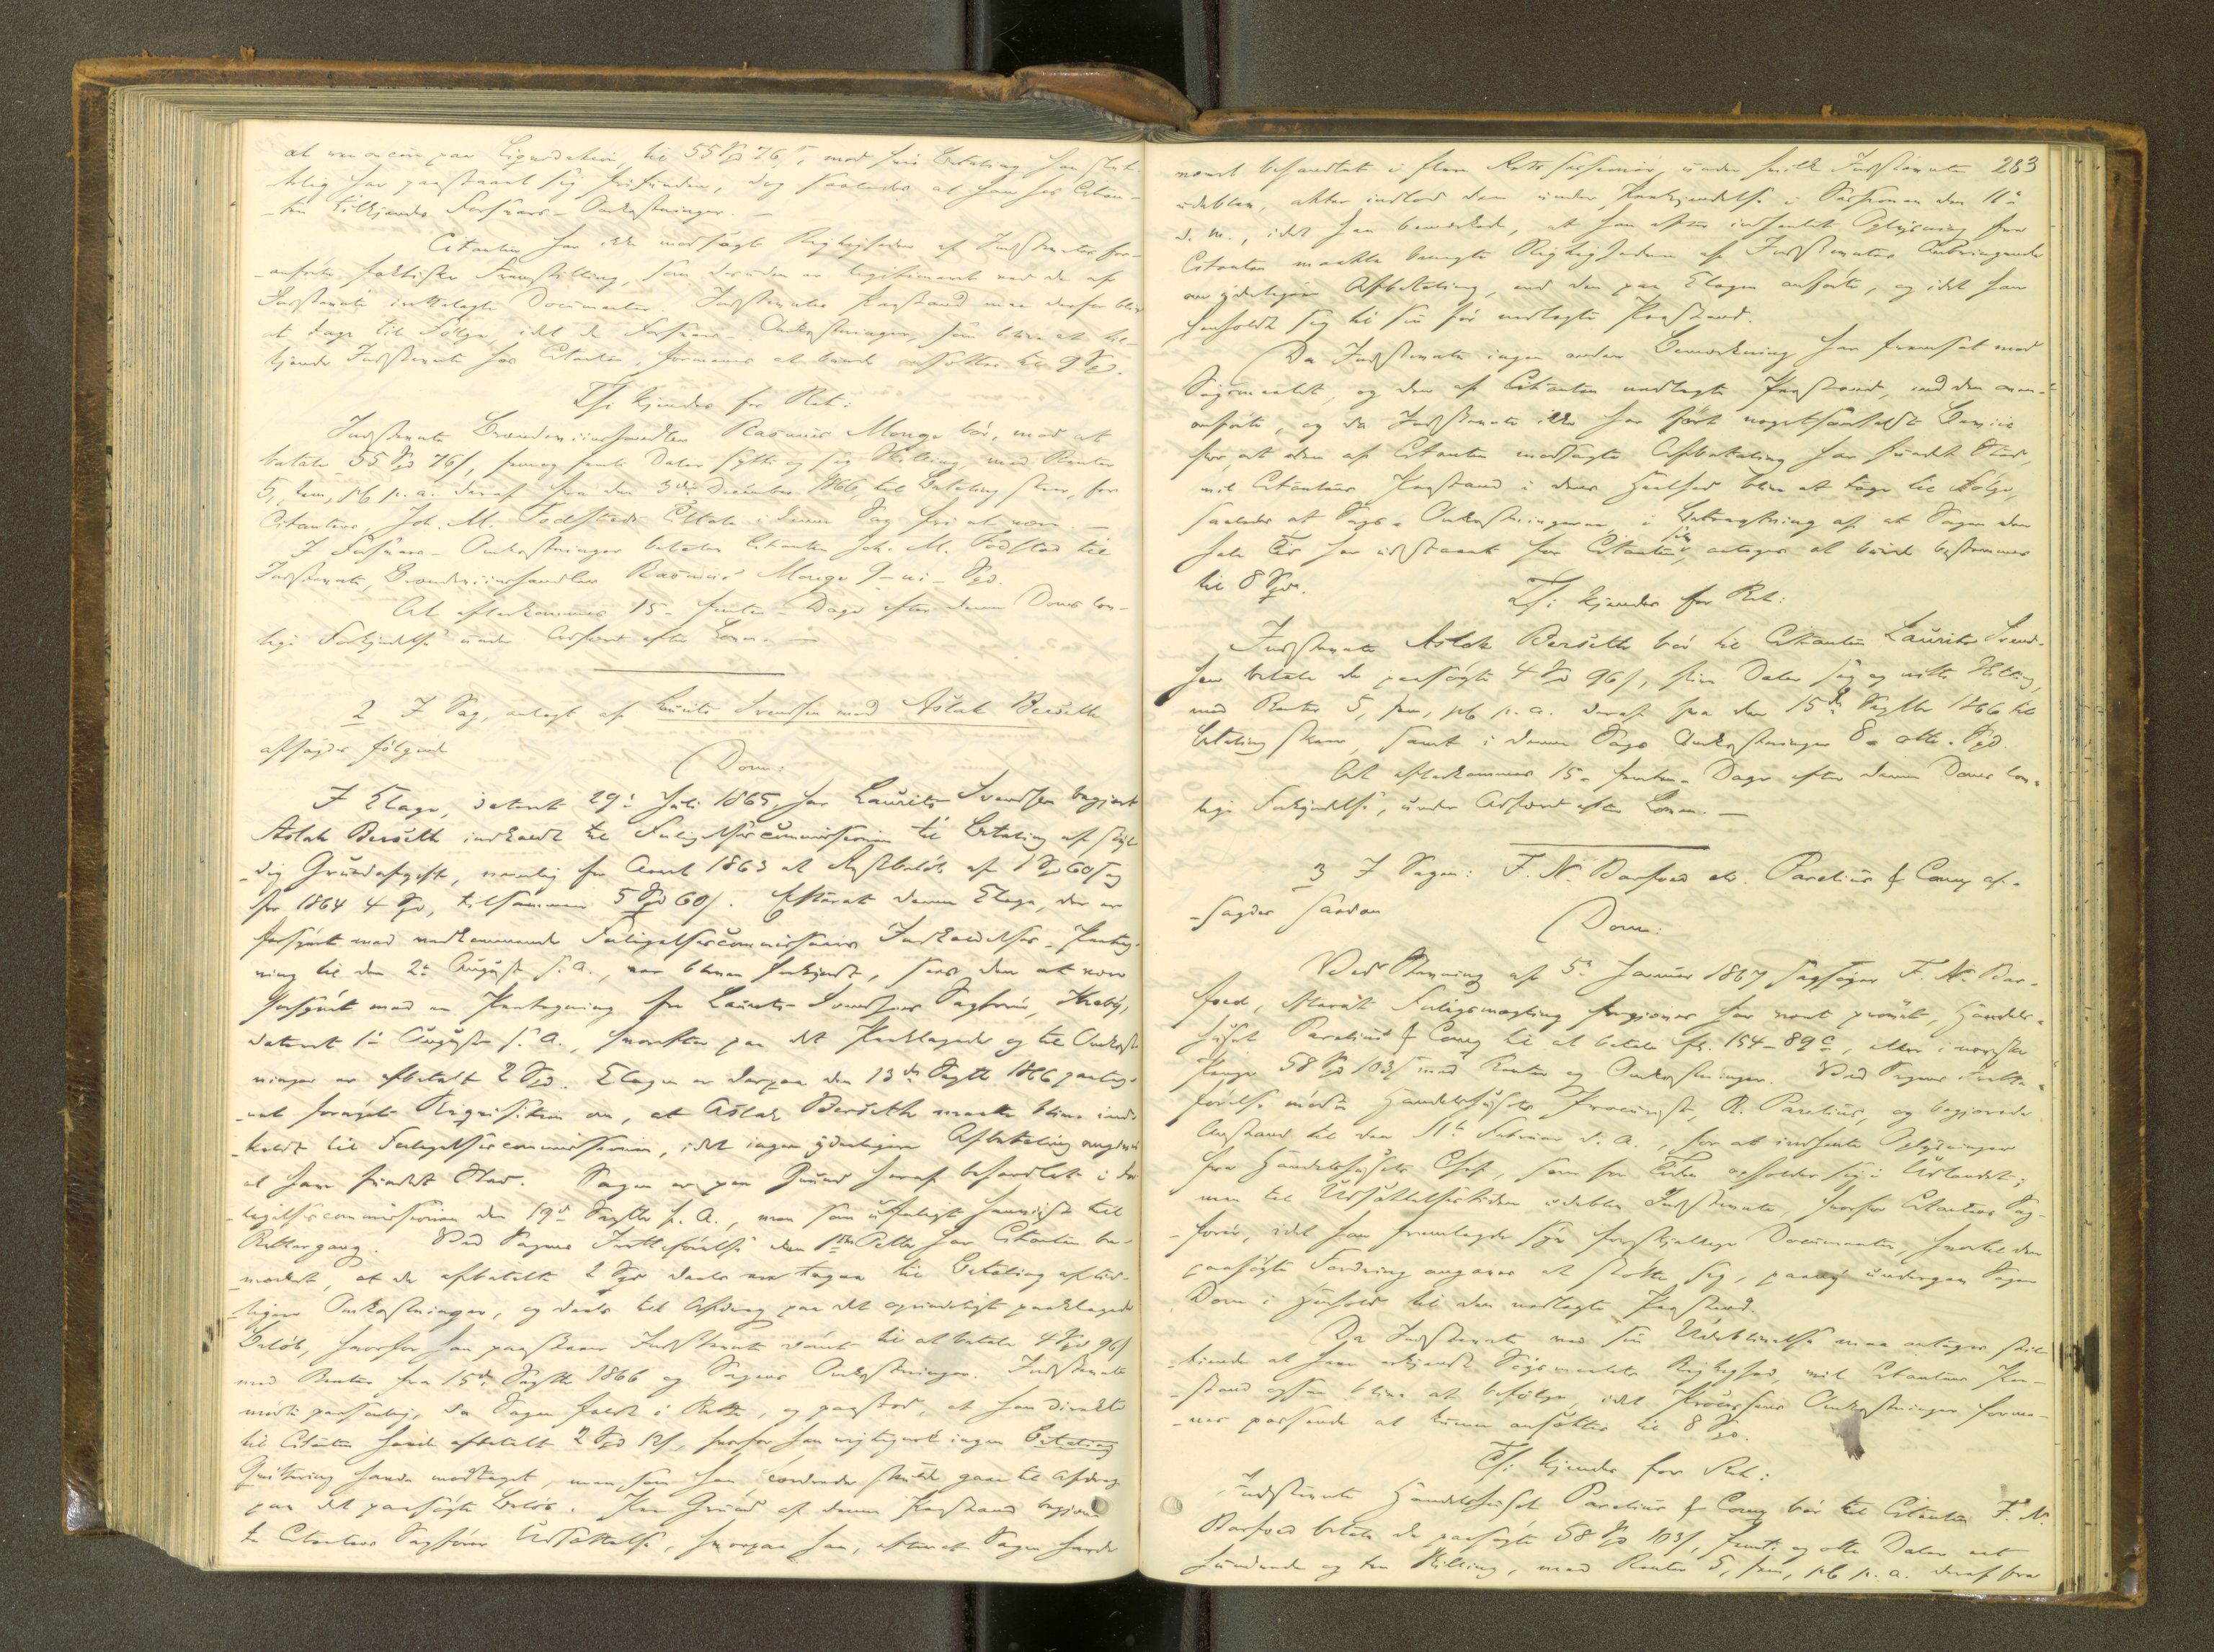 at renoncere paa Liqvidation, til 55 Spd 76 s, mod hvis Betaling han slut-
telig har paastaaet sig frifunden, dog saaledes at han hos Citan-
-ten tilkjendes Forsvars-Omkostninger. —
Citanten har ikke modsagt Rigtigheden af Indstevntes for-
-anførte faktiske Fremstilling, som desuden er legitimeret ved de af
Indstevnte fremlagte Documenter. Indstevntes Paastand maa derfor blive
at tage til Følge, idet de Forsvars-Omkostninger, som blive at til-
kjende Indstevnte hos Citanten, formenes at kunde ansættes til 9 Spd.
Thi kjendes for Ret:
Indstevnte Brændeviinshandler Rasmus Monge bør, mod at
betale 55 Spd 76 s, femog femti Daler sytti og sex Skilling med Renter
5, fem, pCt p. a. deraf fra den 3die December 1866 til Betaling skeer, for
Citantens, Joh. M. Fodstads Tiltale i denne Sag fri at være. —
I Forsvars-Omkostninger betaler Citanten Joh. M. Fodstad til
Indstevnte, Brændeviinshandler Rasmus Monge 9 - ni - Spd.
At efterkommes 15 - femten - Dage efter denne Doms lov-
lige Forkyndelse under Adfærd efter Loven. —
2 I Sag, anlagt af Laurits Svendsen mod Aslak Berseth
afsagdes følgende
Dom:
I Klage, dateret 29de Juli 1865, har Laurits Svendsen begjært
Aslak Berseth indkaldt til Forligelsescommissionen til Betaling af skyl-
-dig Grundafgift, nemlig for Aaret 1863 et Restbeløb af 1 Spd 60 s og
for 1864 4 Spd, tilsammen 5 Spd 60 s. Efterat denne Klage, der er
forsynet med vedkommende Forligelsescommissions Indkaldelses-Paateg-
ning til den 2den August s. A., var bleven forkyndt, sees den at være
forsynet med en Paategning fra Laurits Svendsens Sagfører, Krabÿ,
dateret 1ste August s. A., hvorefter paa det Paaklagede og til Omkost-
ninger er afbetalt 2 Spd. Klagen er derpaa den 13de Septbr 1866 paateg-
-net fornyet Reqvisition om, at Aslak Berseth maatte blive ind-
-kaldt til Forligelsescommissionen, idet ingen yderligere Afbetaling angives
at have fundet Sted. Sagen er paa Grund heraf behandlet i For-
-ligelsescommissionen den 19de Septbr s. A., men som uforligt henviist til
Rettergang. Ved Sagens Iretteførelse den 1ste Octbr har Citanten be-
-mærket, at de afbetalte 2 Spd deels ere tagne til Betaling af tid-
-ligere Omkostninger, og deels til Afdrag paa det oprindeligt paaklagede
Beløb, hvorfor han paastaaer Indstevnte dømt til at betale 4 Spd 96 s
med Renter fra 15de Septbr 1866 og Sagens Omkostninger. Indstevnte
mødte personlig, da Sagen faldt i Rette, og paastod, at han direkte
til Citanten havde afbetalt 2 Spd 12 s, hvorfor han rigtignok ingen Betaling
Qvittering havde modtaget, men som han fordrede skulde gaae til Afdrag
paa det paasøgte Beløb. Paa Grund af denne Paastand begjerede
Citantens Sagfører Udsættelse, hvorpaa han, efterat Sagen havde
283
været behandlet i flere Retssessioner, under hvilke Indstevnte
udeblev, atter indlod den under Paakjendelse i Sessionen den 11te
d. M., idet han bemærkede, at han efter indhentet Oplysning fra
Citanten maatte benegte Rigtigheden af Indstevntes Anbringende
om yderligere Afbetaling, end den paa Klagen anførte, og idet han
henholdt sig til sin før nedlagte Paastand.
Da Indstevnte ingen anden Bemærkning har fremsat mod
Søgsmaalet, og den af Citanten nedlagte Paastand, end den oven-
anførte, og da Indstevnte ikke har ført nogetsomhelst Beviis
for, at den af Citanten modsagte Afbetaling har fundet Sted,
vil Citantens Paastand i dens Heelhed blive at tage til Følge,
saaledes at Sags-Omkostningerne, i Betragtning af at Sagen den
hele Tid har udstaaet for Citanten, antages at burde bestemmes
til 8 Spd.
Thi kjendes for Ret:
Indstevnte Aslak Berseth bør til Citanten Laurits Svend-
sen betale de paasøgte 4 Spd 96 s, fire Daler sex og nitti Skilling,
med Renter 5, fem, pCt p. a. deraf fra den 15de Septbr 1866 til
Betaling skeer, samt i denne Sags Omkostninger 8 - otte - Spd.
At efterkommes 15 - femten - Dage efter denne Doms lov-
lige Forkyndelse, under Adfærd efter Loven. —
3 I Sagen: F. N. Barfoed ctr. Parelius & Comp af-
-sagdes saadan
Dom:
Ved Stevning af 5te Januar 1867 sagsøger F. N. Bar-
foed, efterat Forligsmægling forgjæves har været prøvet, Handels-
huset Parelius & Comp til at betale fr. 154-89 c, eller i norske
Penge 58 Spd 103 s med Renter og Omkostninger. Ved Sagens Irette-
førelse mødte Handelshusets Procurist, R. Parelius, og begjerede
Anstand til den 11te Februar d. A., for at indhente Oplysninger
fra Handelshusets Chef, som for Tiden opholder sig i Udlandet;
men til Udsættelsestiden udeblev Indstevnte, hvorfor Citantens Sag-
-fører, idet han fremlagde sine forskjellige Documenter, hvortil den
paasøgte Fordring angaves at støtte sig, paany undergav Sagen
Dom i Henhold til den nedlagte Paastand.
Da Indstevnte ved sin Udeblivelse maa antages stil-
-tiende at have erkjendt Søgsmaalets Rigtighed, vil Citantens Paa-
-stand ogsaa blive at befølge, idet Processens Omkostninger forme-
-nes passende at kunne ansættes til 8 Spd.
Thi kjendes for Ret:
Indstevnte Handelshuset Parelius & Comp bør til Citanten F. N.
Barfoed betale de paasøgte 58 Spd 103 s, femti og otte Daler et
hundrede og tre Skilling, med Renter 5, fem, pCt p. a. deraf fra